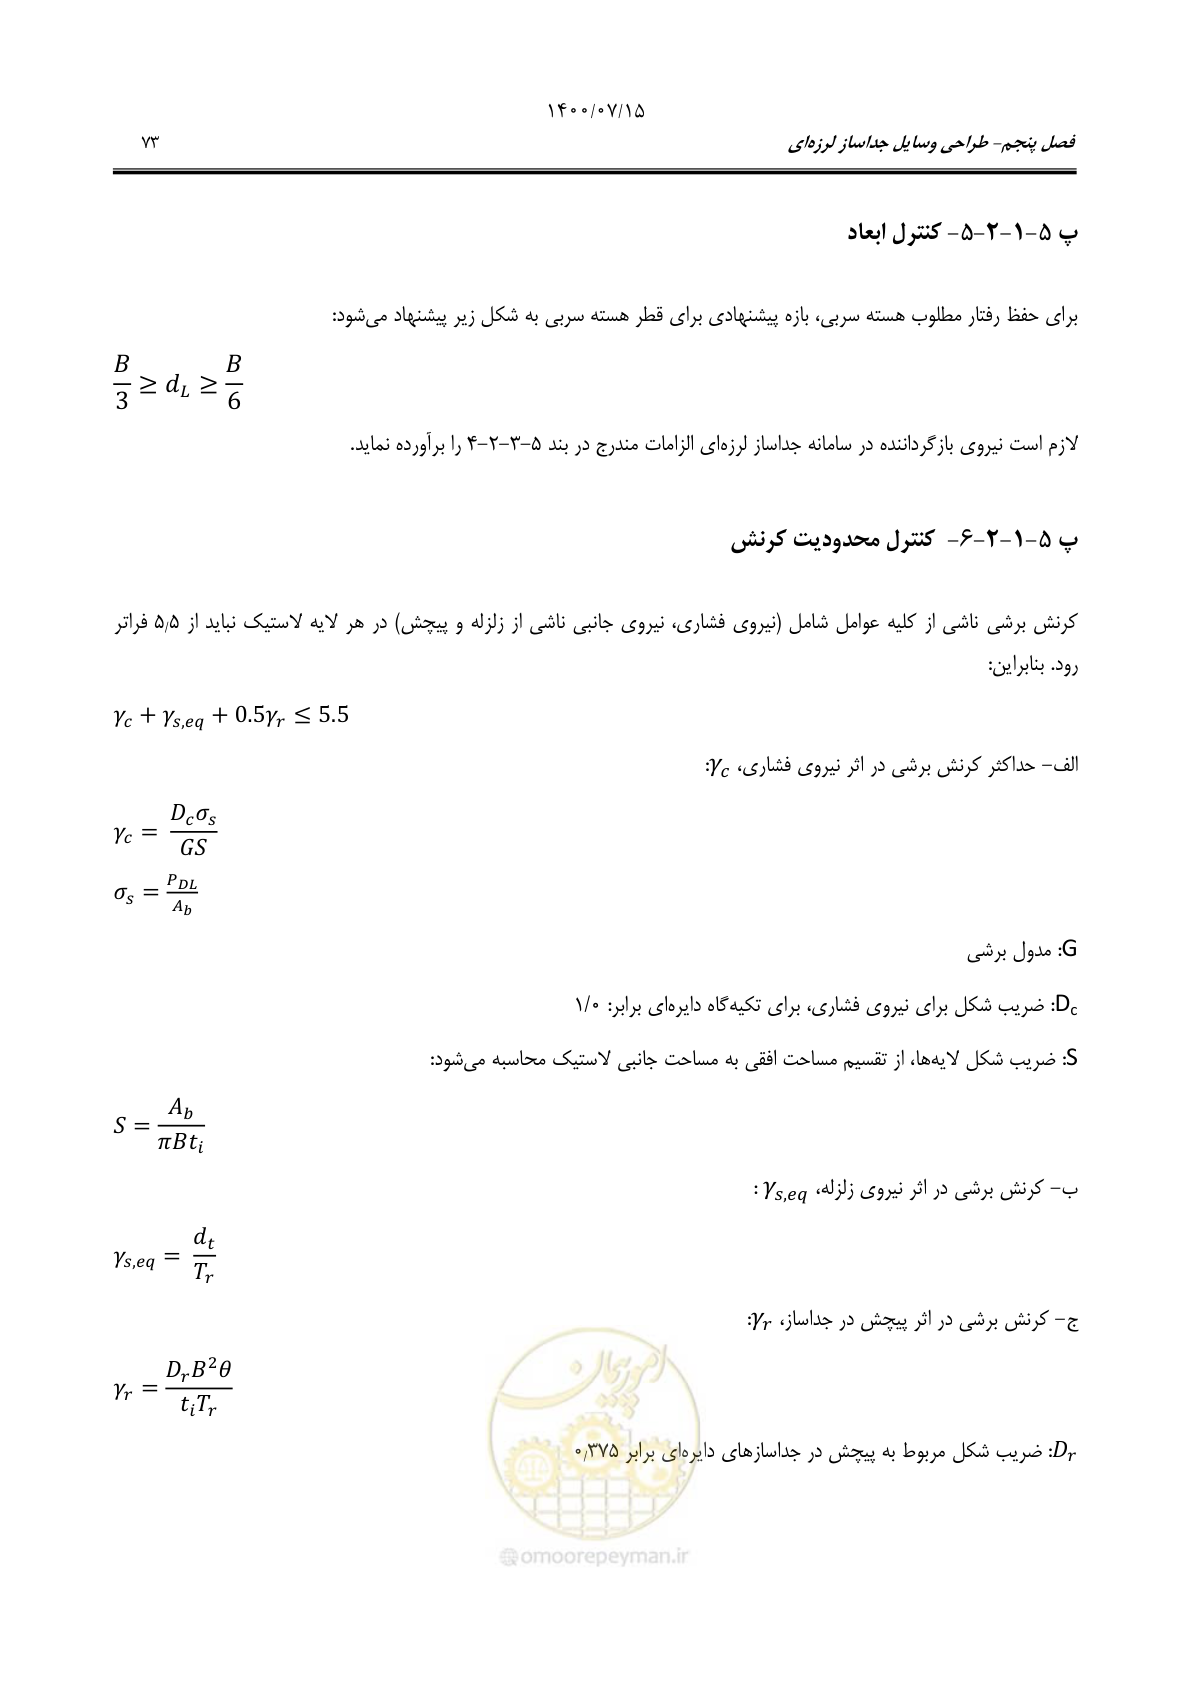 ۱۴۰۰/۰۷/۱۵
فصل پنجم- طراحی وسایل جداساز لرزه‌ای ۷۳
پ ۵-۱-۲-۵- کنترل ابعاد
برای حفظ رفتار مطلوب هسته سربی، بازه پیشنهادی برای قطر هسته سربی به شکل زیر پیشنهاد می‌شود:
B/3 ≥ d_L ≥ B/6
لازم است نیروی بازگرداننده در سامانه جداساز لرزه‌ای الزامات مندرج در بند ۵-۳-۲-۴ را برآورده نماید.
پ ۵-۱-۲-۶- کنترل محدودیت کرنش
کرنش برشی ناشی از کلیه عوامل شامل (نیروی فشاری، نیروی جانبی ناشی از زلزله و پیچش) در هر لایه لاستیک نباید از ۵٫۵ فراتر
رود. بنابراین:
γ_c + γ_{s,eq} + 0.5γ_r ≤ 5.5
الف- حداکثر کرنش برشی در اثر نیروی فشاری، γ_c:
γ_c = D_c σ_s / GS
σ_s = P_{DL} / A_b
G: مدول برشی
D_c: ضریب شکل برای نیروی فشاری، برای تکیه‌گاه دایره‌ای برابر: ۱/۰
S: ضریب شکل لایه‌ها، از تقسیم مساحت افقی به مساحت جانبی لاستیک محاسبه می‌شود:
S = A_b / πBt_i
ب- کرنش برشی در اثر نیروی زلزله، γ_{s,eq} :
γ_{s,eq} = d_t / T_r
ج- کرنش برشی در اثر پیچش در جداساز، γ_r:
γ_r = D_r B² θ / t_i T_r
D_r: ضریب شکل مربوط به پیچش در جداسازهای دایره‌ای برابر ۰٫۳۷۵
امور پیمان
@omoorepeyman.ir